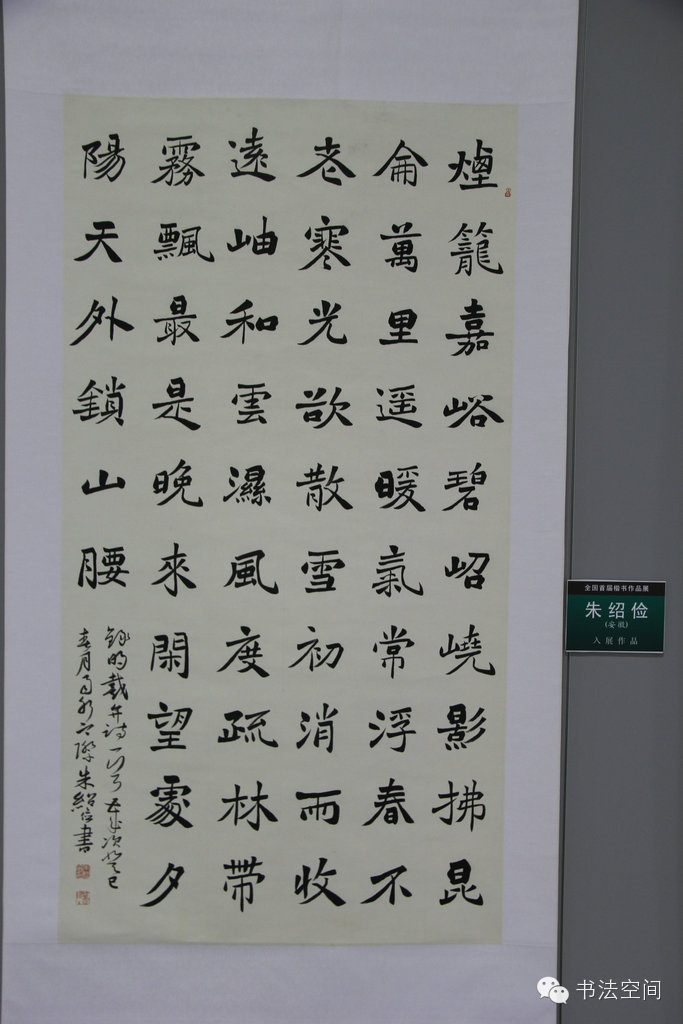 煙籠嘉峪碧岹嶢影拂昆
侖萬里遥暖氣常浮春不
老寒光欲散雪初消而收
遠岫和雲濕風度疏林帶
霧飄最是晚來閑望處夕
陽天外鎖山腰
錄明戴弁詩一首歲次癸巳
春月朱紹書
全国首届楷书作品展
朱绍俭
(安徽)
入展作品
书法空间